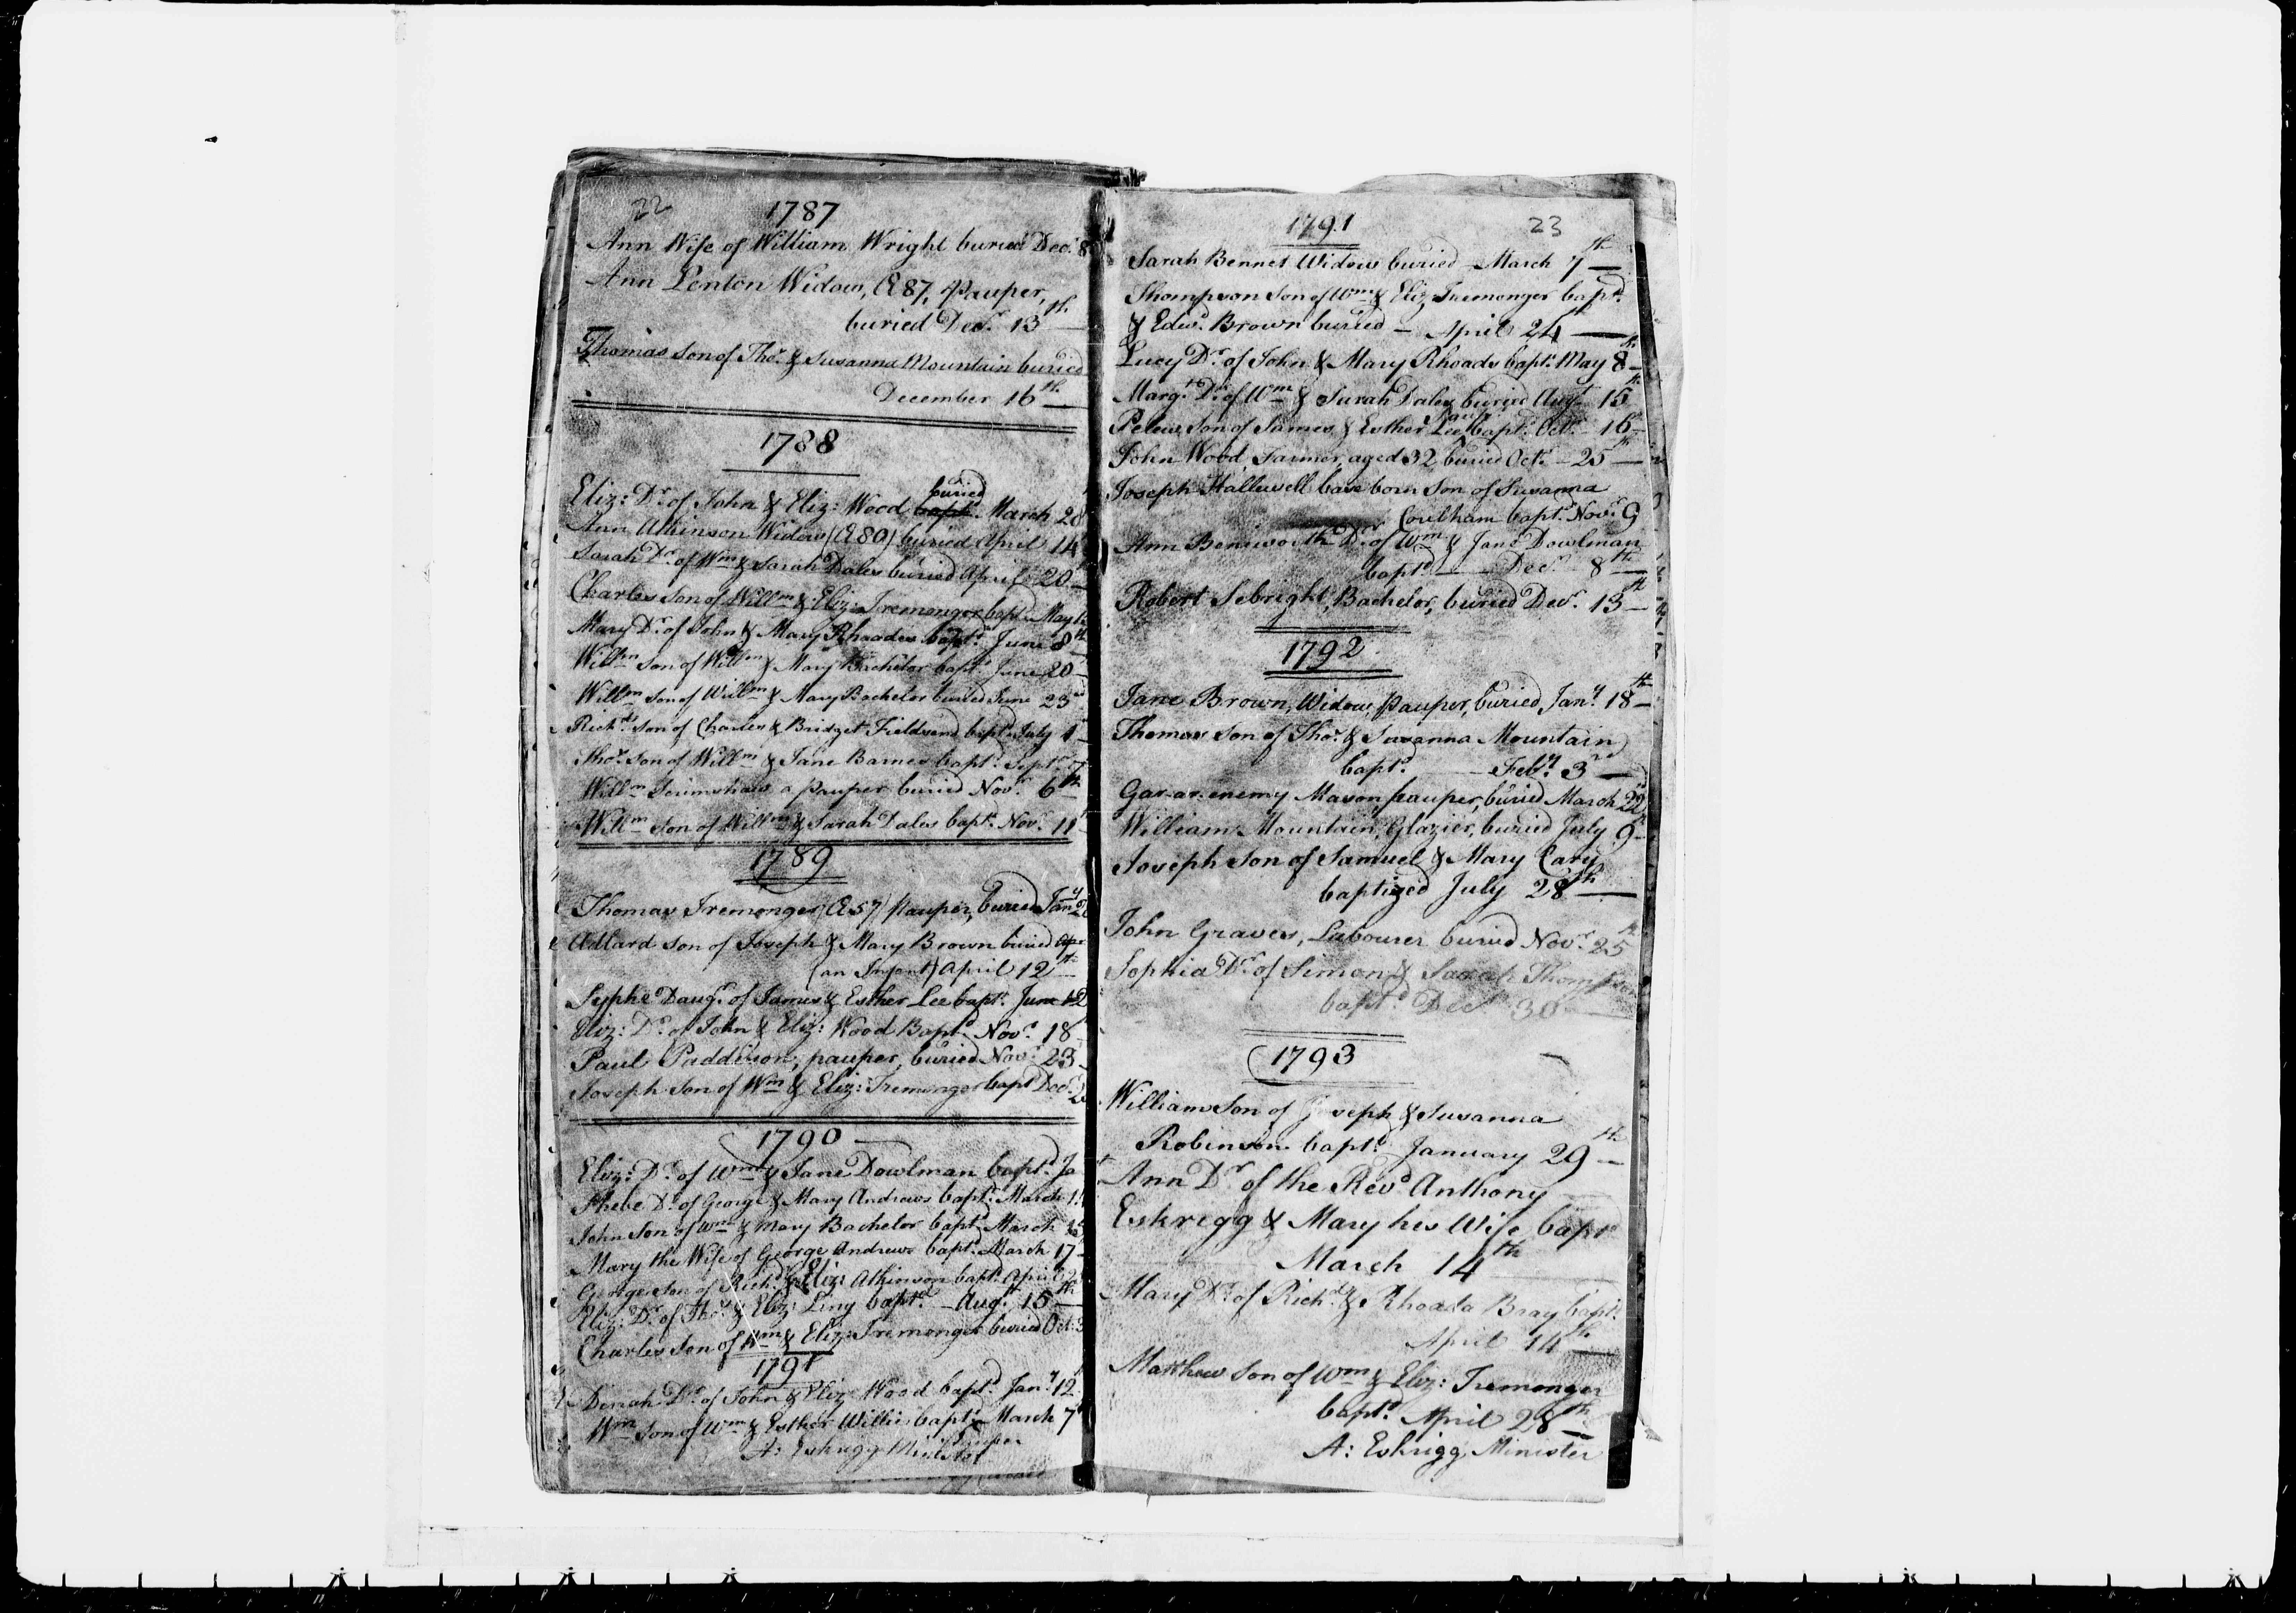 22
1787
Ann Wife of William Wright buried Decr. 8
Ann Penton Widow, Æ 87, Pauper,
buried Decr. 13th
Thomas Son of Thos. & Susanna Mountain buried
December 16th
1788
buried
Eliz: Dr. of John & Eliz: Wood bapt. March 28
Ann Atkinson Widow (Æ 80) buried April 14
Sarah Dr. of Wm & Sarah Dales buried April 20
Charles Son of Willm & Eliz: Tremonger baptd. May
Mary Dr. of John & Mary Rhoades baptd. June 8th
Willm Son of Willm & Mary Bachelor baptd. June 20
Willm Son of Willm & Mary Bachelor buried June 23
Richd. Son of Charles & Bridget Fieldsend baptd. July 1
Thos. Son of Willm & Jane Barnes baptd. Septr. 7
Willm Scrimshaw a Pauper buried Novr. 6th
Willm Son of Willm & Sarah Dales baptd. Novr. 11
1789
Thomas Tremonger (Æ 57) Pauper, buried Jany
Adlard Son of Joseph & Mary Brown buried
(an Infant) April 12th
Syphe Daugr. of James & Esther Lee bapt. June 12
Eliz: Dr. of John & Eliz: Wood Baptd. Novr. 18
Paul Paddison, pauper, buried Novr. 23
Joseph Son of Wm & Eliz: Tremonger bapt Decr.
1790
Eliz: Dr. of Wm & Jane Dowlman baptd. Ja
Phebe Dr. of George & Mary Andrews baptd. March
John Son of Wm & Mary Bachelor baptd. March 15
Mary the Wife of George Andrews baptd. March 17
George Son of Richd. & Eliz: Atkinson baptd. April
Eliz: Dr. of Thos. & Eliz: Ling baptd. Augt. 15th
Charles Son of Wm & Eliz: Tremonger buried Oct.
1791
Dinah Dr. of John & Eliz Wood baptd. Jany. 12
Wm Son of Wm & Esther Willis baptd. March 7
A: Eskrigg Minister
23
1791
Sarah Bennet Widow buried March 7th
Thompson Son of Wm & Eliz: Tremonger baptd.
& Edwd. Brown buried April 24th
Lucy Dr. of John & Mary Rhoads baptd. May 8th
Margt. Dr. of Wm & Sarah Dales buried Augt. 15th
Pelew Son of James & Esther Lee baptd. Octr. 16
John Wood, Farmer, aged 32 buried Octr. 25th
Joseph Hallewell base born Son of Susanna
Coultham baptd. Novr. 9
Ann Beniworth Dr. of Wm & Jane Dowlman
baptd. Decr. 8th
Robert Sebright, Bachelor, buried Decr. 13th
1792
Jane Brown, Widow, Pauper, buried Jany. 18th
Thomas Son of Thos. & Susanna Mountain
baptd. Feby. 3rd
Gar-ar-enemy Mason, pauper, buried March 22
William Mountain, Glazier, buried July 9th
Joseph Son of Samuel & Mary Cary
baptized July 28th
John Graves, Labourer buried Novr. 25th
Sophia Dr. of Simon & Sarah Thompson
baptd. Decr. 30
1793
William Son of Joseph & Susanna
Robinson baptd. January 29th
Ann Dr. of the Revd. Anthony
Eskrigg & Mary his Wife bapt
March 14th
Mary Dr. of Richd. & Rhoada Bray baptd.
April 14th
Matthew Son of Wm & Eliz: Tremonger
baptd. April 28th
A: Eskrigg, Minister